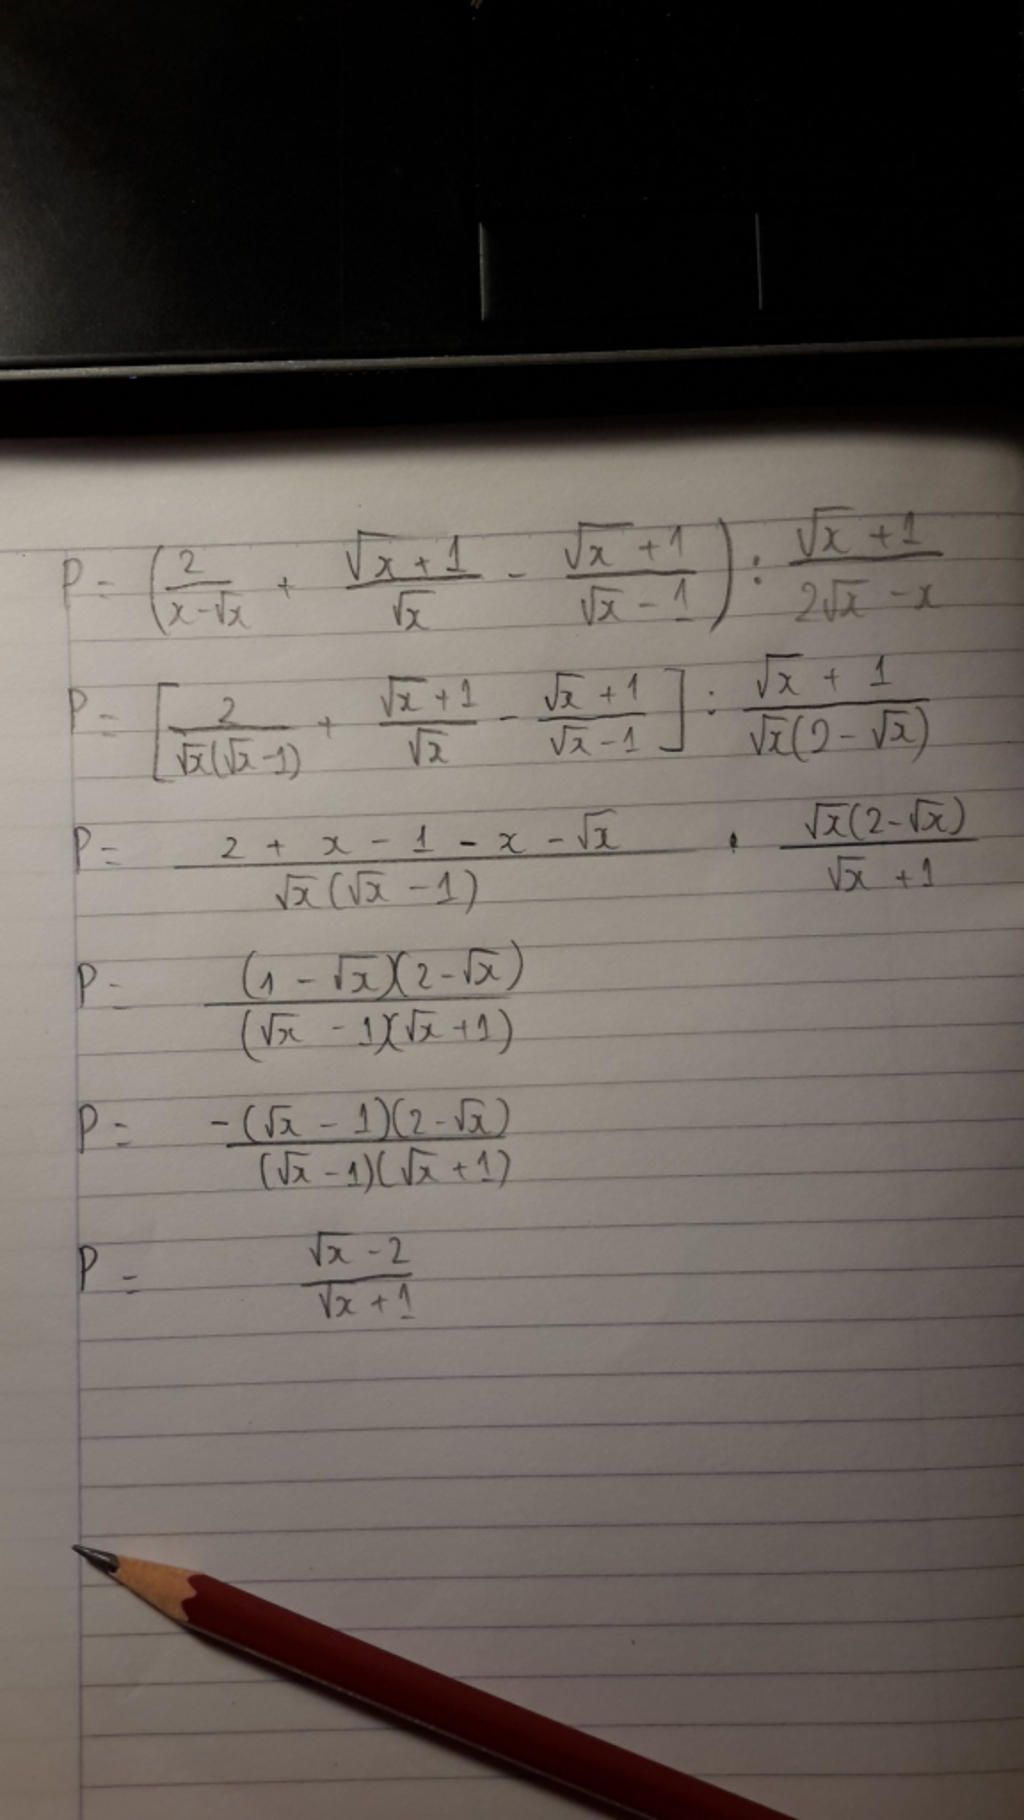 P = (2/(x-√x) + (√x+1)/√x - (√x+1)/(√x-1)) : (√x+1)/(2√x-x)
P = [2/(√x(√x-1)) + (√x+1)/√x - (√x+1)/(√x-1)] : (√x+1)/(√x(2-√x))
P = (2+x-1-x-√x)/(√x(√x-1)) . (√x(2-√x))/(√x+1)
P = ((1-√x)(2-√x))/((√x-1)(√x+1))
P = (-(√x-1)(2-√x))/((√x-1)(√x+1))
P = (√x-2)/(√x+1)